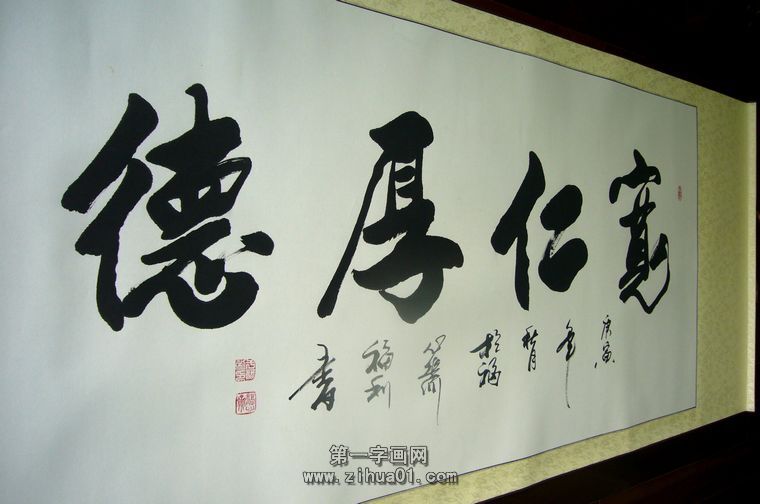 寬仁厚德
庚寅
年
秋月
於福
利
書
第一字画网
www.zihua01.com